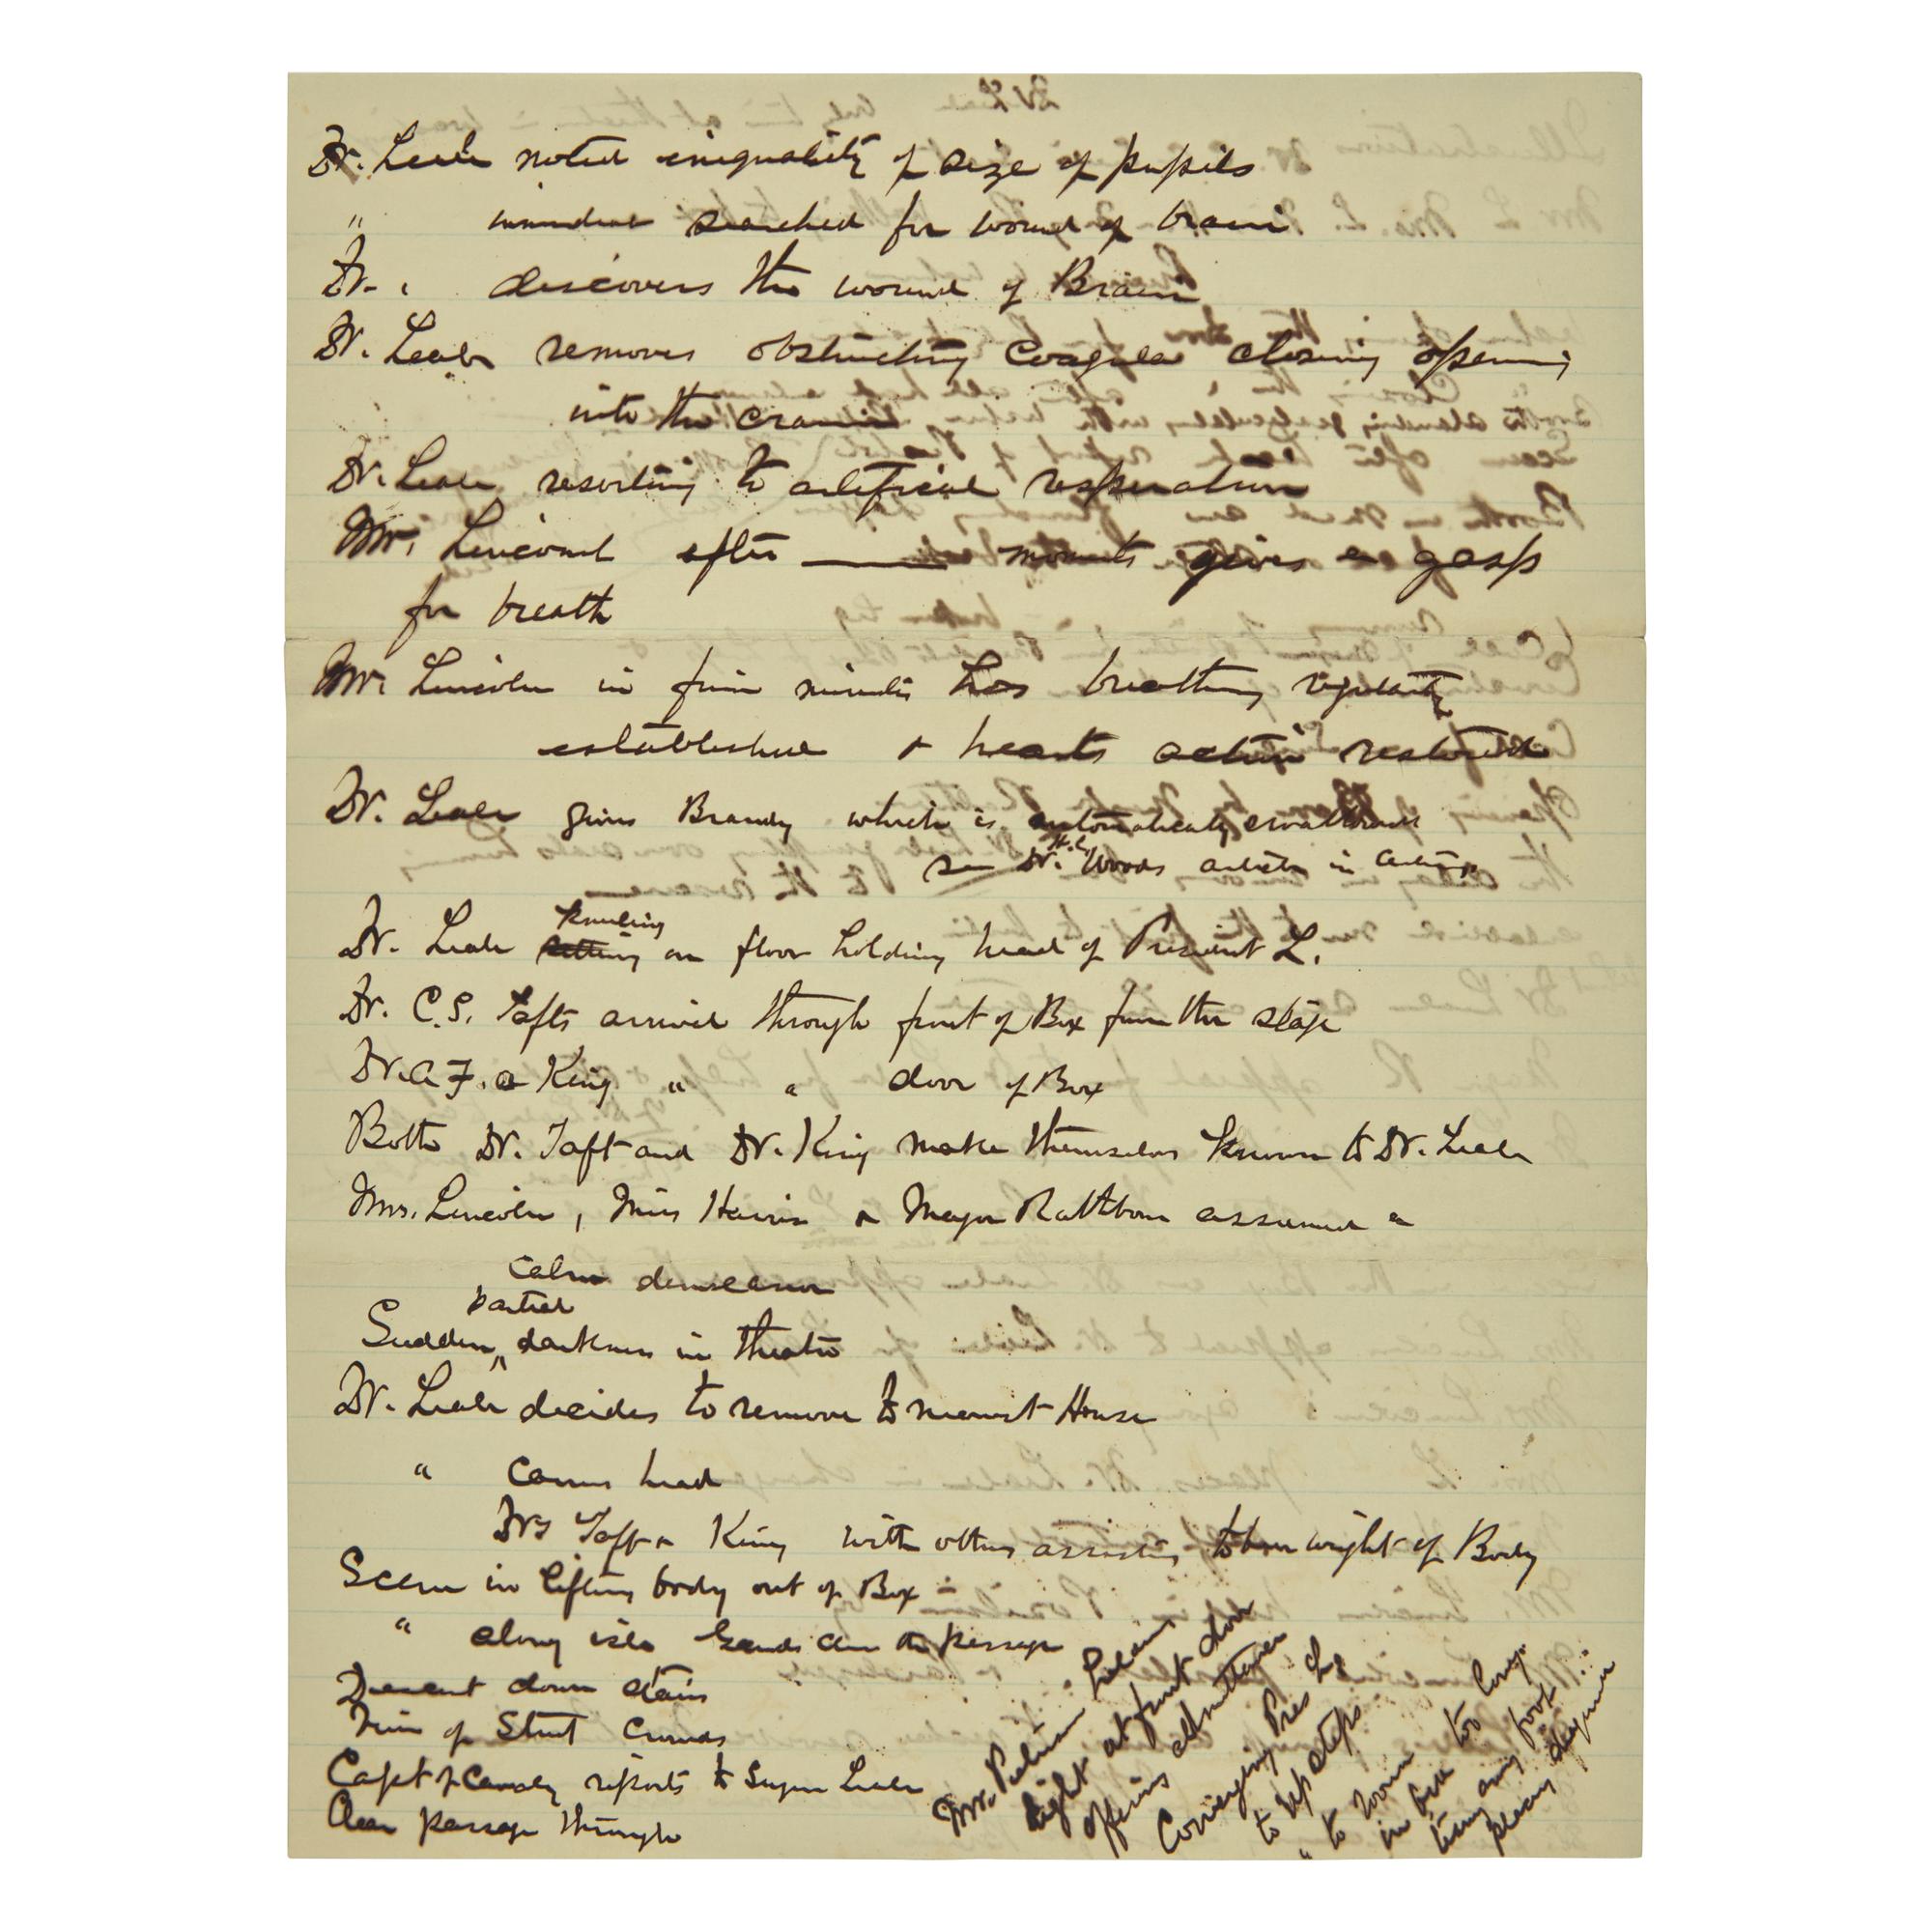 Dr. Leale noted inequality of size of pupils
" searched for wound of brain
Dr. " discovers the wound of Brain
Dr. Leale removes obstructing Coagula closing opening
into the cranium
Dr. Leale resorting to artificial respiration
Mr. Lincoln after ——— moments gives a gasp
for breath
Mr. Lincoln in five minutes has breathing regularity
established & hearts action restored
Dr. Leale gives Brandy which is automatically swallowed
see Dr. H.C. Woods article in
Dr. Leale sitting kneeling on floor holding head of President L.
Dr. C.S. Tafts arrived through front of Box from the stage
Dr. A F. A King " " door of Box
Both Dr. Taft and Dr. King make themselves known to Dr. Leale
Mrs. Lincoln, Miss Harris & Major Rathbone assumed a
calm demeanor
partial
Sudden ^ darkness in theatre
Dr. Leale decides to remove to nearest House
" carries head
Drs Taft & King with others assisting to bear weight of Body
Scene in lifting body out of Box
" along isle Guards clear the passage
Descent down stairs
View of Street Crowds
Capt of Cavalry reports to Surgeon Leale
Clear passage through
Mr. Peterson holding
light at front door
offering admittance
Conveying Pres L
to up steps
" to room
in bed too long